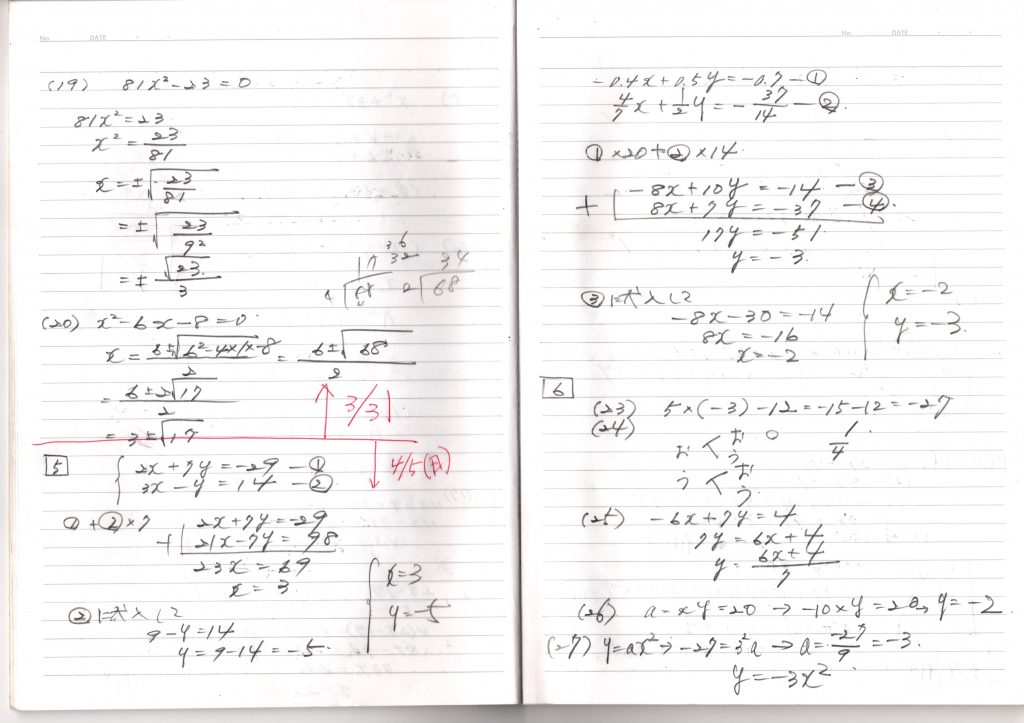 No.
DATE
(19) 81x²-23=0
81x²=23
x²=23/81
x=±√(23/81)
=±√(23/9²)
=±√23/3
(20) x²-6x-8=0
x=(6±√(6²-4×1×-8))/2=(6±√68)/2
=(6±2√17)/2
=3±√17
3/31
4/5(日)
5
{ 2x+7y=-29 -①
3x-y=14 -②
①+②×7
2x+7y=-29
+ 21x-7y=98
23x=69
x=3
②に代入して
9-y=14
y=9-14=-5
{ x=3
y=-5
17 34
4√68 2√68
No.
DATE
-0.4x+0.5y=-0.7 -①
4/7x+1/2y=-37/14 -②
①×20+②×14
-8x+10y=-14 -③
+ 8x+7y=-37 -④
17y=-51
y=-3
③に代入して
-8x-30=-14
8x=-16
x=-2
{ x=-2
y=-3
6
(23) 5×(-3)-12=-15-12=-27
(24) お < お う ○ 1/4
う < お う
(25) -6x+7y=4
7y=6x+4
y=(6x+4)/7
(26) a=xy=20 → -10×y=20, y=-2
(27) y=ax² → -27=3²a → a=-27/9=-3
y=-3x²